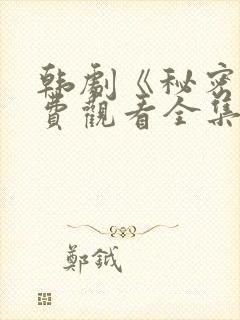 韩劇《秘密
費觀看全集
鄭鉞